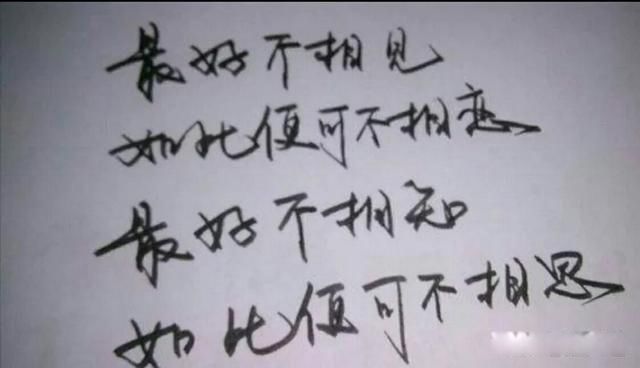 最好不相见
如此便可不相恋
最好不相知
如此便可不相思